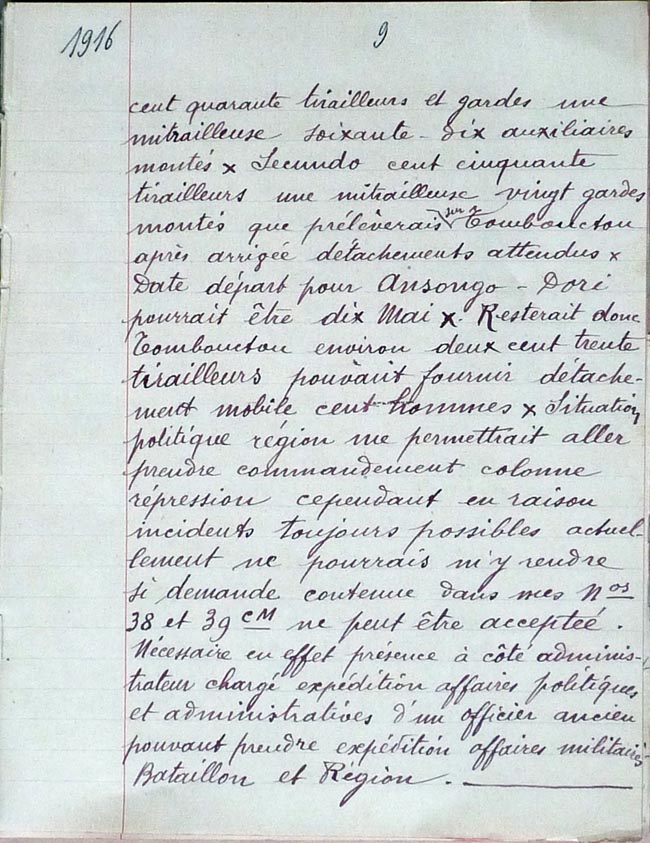 1916
9
cent quarante tirailleurs et gardes une
mitrailleuse soixante-dix auxiliaires
montés x Secundo cent cinquante
tirailleurs une mitrailleuse vingt gardes
montés que prélèverais sur Tombouctou
après arrigée détachements attendus x
Date départ pour Ansongo - Dori
pourrait être dix Mai x. Resterait donc
Tombouctou environ deux cent trente
tirailleurs pouvant fournir détache-
ment mobile cent hommes x Situation
politique région me permettrait aller
prendre commandement colonne
répression cependant en raison
incidents toujours possibles actuel-
lement ne pourrais m'y rendre
si demande contenue dans mes Nos
38 et 39 CM ne peut être acceptée.
Nécessaire en effet présence à côté adminis-
trateur chargé expédition affaires politiques
et administratives d'un officier ancien
pouvant prendre expédition affaires militaires
Bataillon et Région.